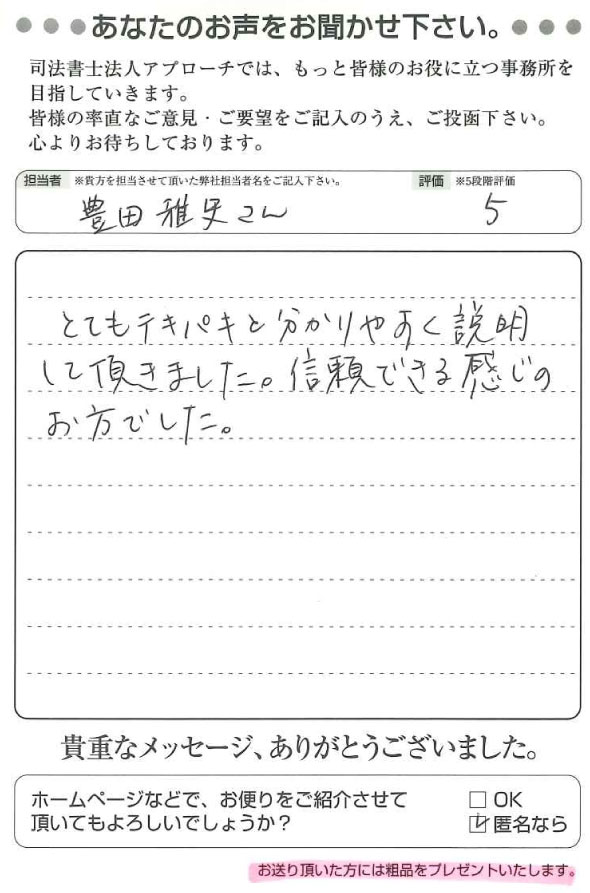 ●●●あなたのお声をお聞かせ下さい。●●●
司法書士法人アプローチでは、もっと皆様のお役に立つ事務所を
目指していきます。
皆様の率直なご意見・ご要望をご記入のうえ、ご投函下さい。
心よりお待ちしております。
担当者 ※貴方を担当させて頂いた弊社担当者名をご記入下さい。 評価 ※5段階評価
豊田雅史さん 5
とてもテキパキと分かりやすく説明
して頂きました。信頼できる感じの
お方でした。
貴重なメッセージ、ありがとうございました。
ホームページなどで、お便りをご紹介させて
頂いてもよろしいでしょうか？
□ OK
☑ 匿名なら
お送り頂いた方には粗品をプレゼントいたします。